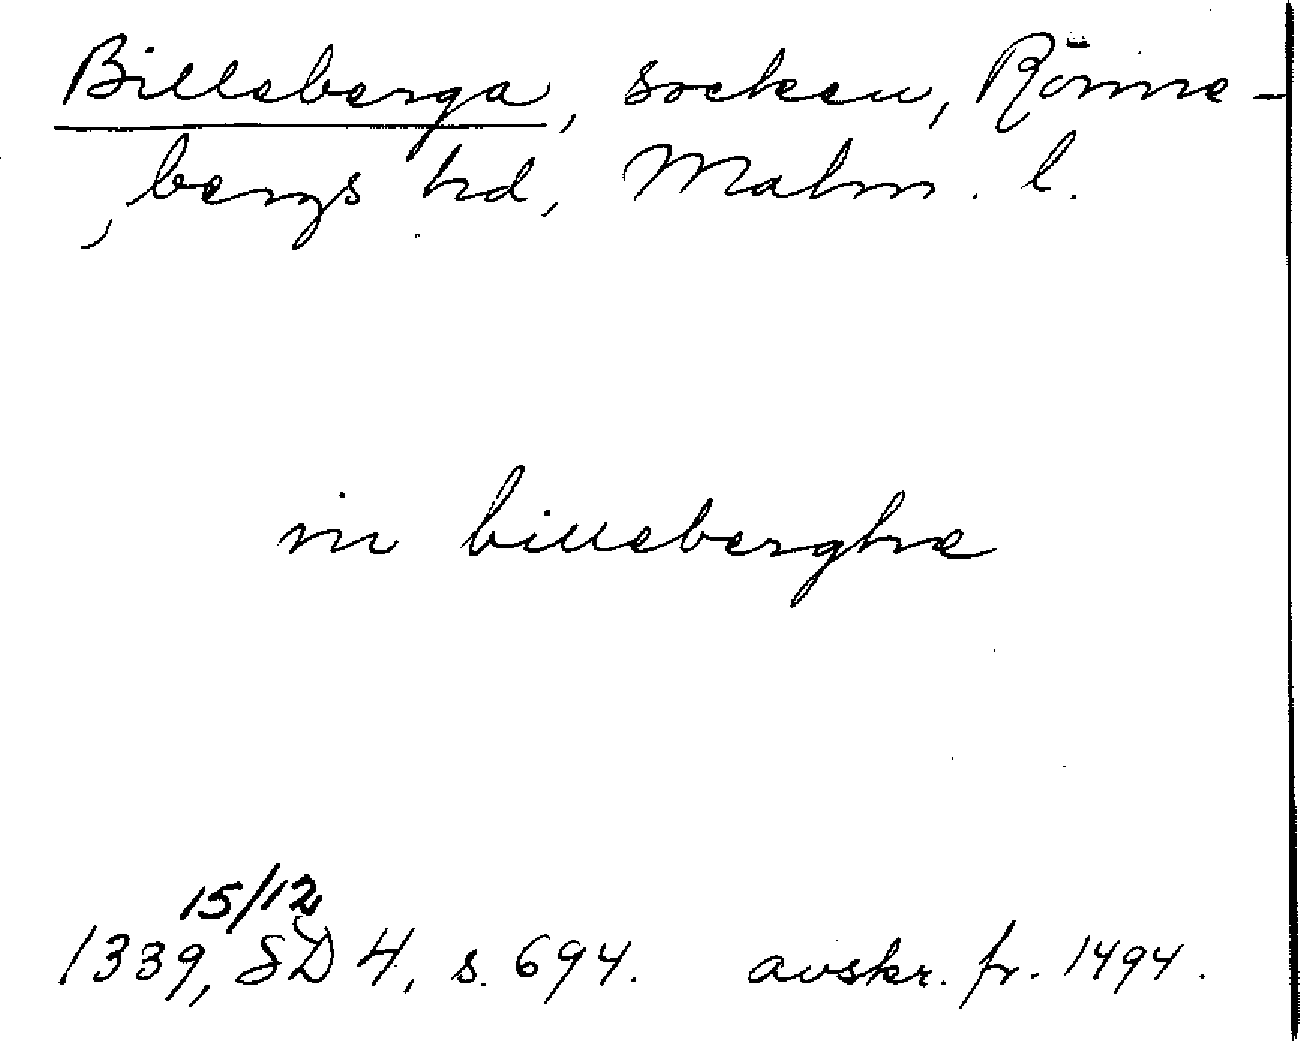 Billeberga, socken, Rönne-
bergs hd, Malm. l.
in billeberghæ
15/12
1339, SD 4, s. 694. avskr. fr. 1494.